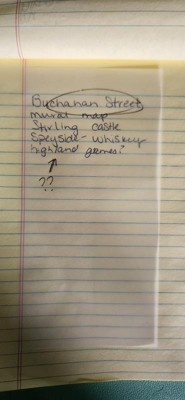 Buchanan Street
mural map
Stirling Castle
Speyside - whiskey
highland games!
??